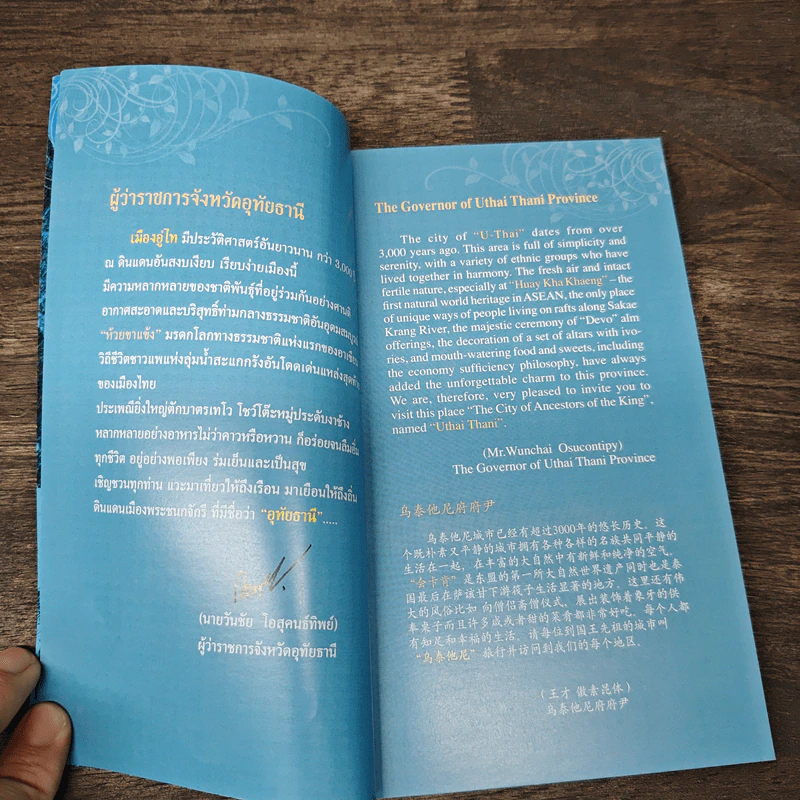 ผู้ว่าราชการจังหวัดอุทัยธานี
เมืองอู่ไท มีประวัติศาสตร์อันยาวนาน กว่า 3,000 ปี
ณ ดินแดนอันสงบเงียบ เรียบง่ายเมืองนี้
มีความหลากหลายของชาติพันธุ์ที่อยู่ร่วมกันอย่างสันติ
อากาศสะอาดและบริสุทธิ์ท่ามกลางธรรมชาติอันอุดมสมบูรณ์
"ห้วยขาแข้ง" มรดกโลกทางธรรมชาติแห่งแรกของอาเซียน
วิถีชีวิตชาวแพแห่งลุ่มน้ำสะแกกรังอันโดดเด่นแหล่งสุดท้าย
ของเมืองไทย
ประเพณียิ่งใหญ่ตักบาตรเทโว โชว์โต๊ะหมู่ประดับงาช้าง
หลากหลายอย่างอาหารไม่ว่าคาวหรือหวาน ก็อร่อยจนลืมอิ่ม
ทุกชีวิต อยู่อย่างพอเพียง ร่มเย็นและเป็นสุข
เชิญชวนทุกท่าน แวะมาเที่ยวให้ถึงเรือน มาเยือนให้ถึงถิ่น
ดินแดนเมืองพระชนกจักรี ที่มีชื่อว่า "อุทัยธานี".....
(นายวันชัย โอสุคนธ์ทิพย์)
ผู้ว่าราชการจังหวัดอุทัยธานี
The Governor of Uthai Thani Province
The city of "U-Thai" dates from over
3,000 years ago. This area is full of simplicity and
serenity, with a variety of ethnic groups who have
lived together in harmony. The fresh air and intact
fertile nature, especially at "Huay Kha Khaeng" – the
first natural world heritage in ASEAN, the only place
of unique ways of people living on rafts along Sakae
Krang River, the majestic ceremony of "Devo" alm
offerings, the decoration of a set of altars with ivo-
ries, and mouth-watering food and sweets, including
the economy sufficiency philosophy, have always
added the unforgettable charm to this province.
We are, therefore, very pleased to invite you to
visit this place "The City of Ancestors of the King",
named "Uthai Thani".
(Mr.Wunchai Osucontipy)
The Governor of Uthai Thani Province
乌泰他尼府府尹
乌泰他尼城市已经有超过3000年的悠长历史。这
个既朴素又平静的城市拥有各种各样的名族共同平静的
生活在一起。在丰富的大自然中有新鲜和纯净的空气。
"会卡肯" 是东盟的第一所大自然世界遗产同时也是泰
国最后在萨该甘下游筏子生活显著的地方。这里还有伟
大的风俗比如 向僧侣斋僧仪式，展出装饰着象牙的供
奉桌子而且许多咸或者甜的菜肴都非常好吃。每个人都
有知足和幸福的生活。请每位到国王先祖的城市叫
"乌泰他尼" 旅行并访问到我们的每个地区。
(王才 傲素昆体)
乌泰他尼府府尹